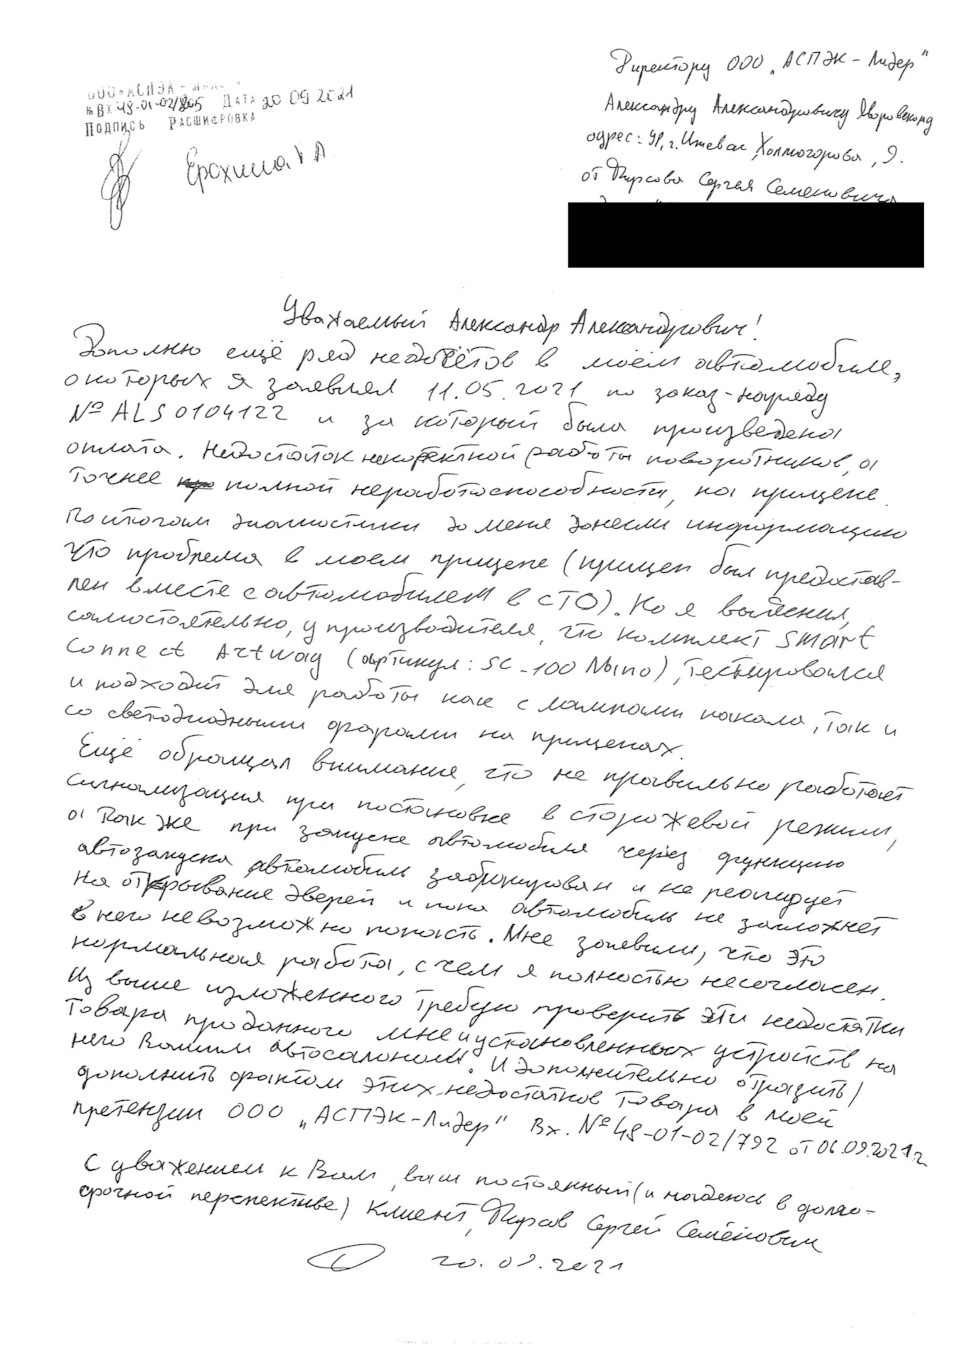 ООО «АСПЭК -
№ Вх 48-01-02/805 Дата 20 09 2021
Подпись Расшифровка
Ерохина
Директору ООО „АСПЭК – Лидер"
Александру Александровичу
адрес: УР, г. Ижевск, Холмогорова, 9.
от Фирсова Сергея Семеновича
Уважаемый Александр Александрович!
Дополню ещё ряд недочётов в моём автомобиле,
о которых я заявлял 11.05.2021 по заказ-наряду
№ ALS0104122 и за который была произведена
оплата. Недостаток некорректной работы поворотников, а
точнее полной неработоспособности, на прицепе.
По итогам диагностики до меня донесли информацию
что проблема в моем прицепе (прицеп был предостав-
лен вместе с автомобилем в СТО). Но я выяснил,
самостоятельно, у производителя, что комплект Smart
Connect Artway (артикул: SC-100 Nano), тестировался
и подходит для работы как с лампами накала, так и
со светодиодными фарами на прицепах.
Ещё обращал внимание, что не правильно работает
сигнализация при постановке в сторожевой режим,
а так же при запуске автомобиля через функцию
автозапуска автомобиль заблокирован и не реагирует
на открывание дверей и пока автомобиль не заглохнет
в него невозможно попасть. Мне заявили, что это
нормальная работа, с чем я полностью несогласен.
Из выше изложенного требую проверить эти недостатки
Товара проданного мне и установленных устройств на
него Вашим автосалоном. И дополнительно отразить/
дополнить фактом этих недостатков Товара в моей
претензии ООО „АСПЭК-Лидер" Вх. №48-01-02/792 от 06.09.2021г.
С уважением к Вам, ваш постоянный (и надеюсь в долго-
срочной перспективе) клиент, Фирсов Сергей Семёнович
20.09.2021